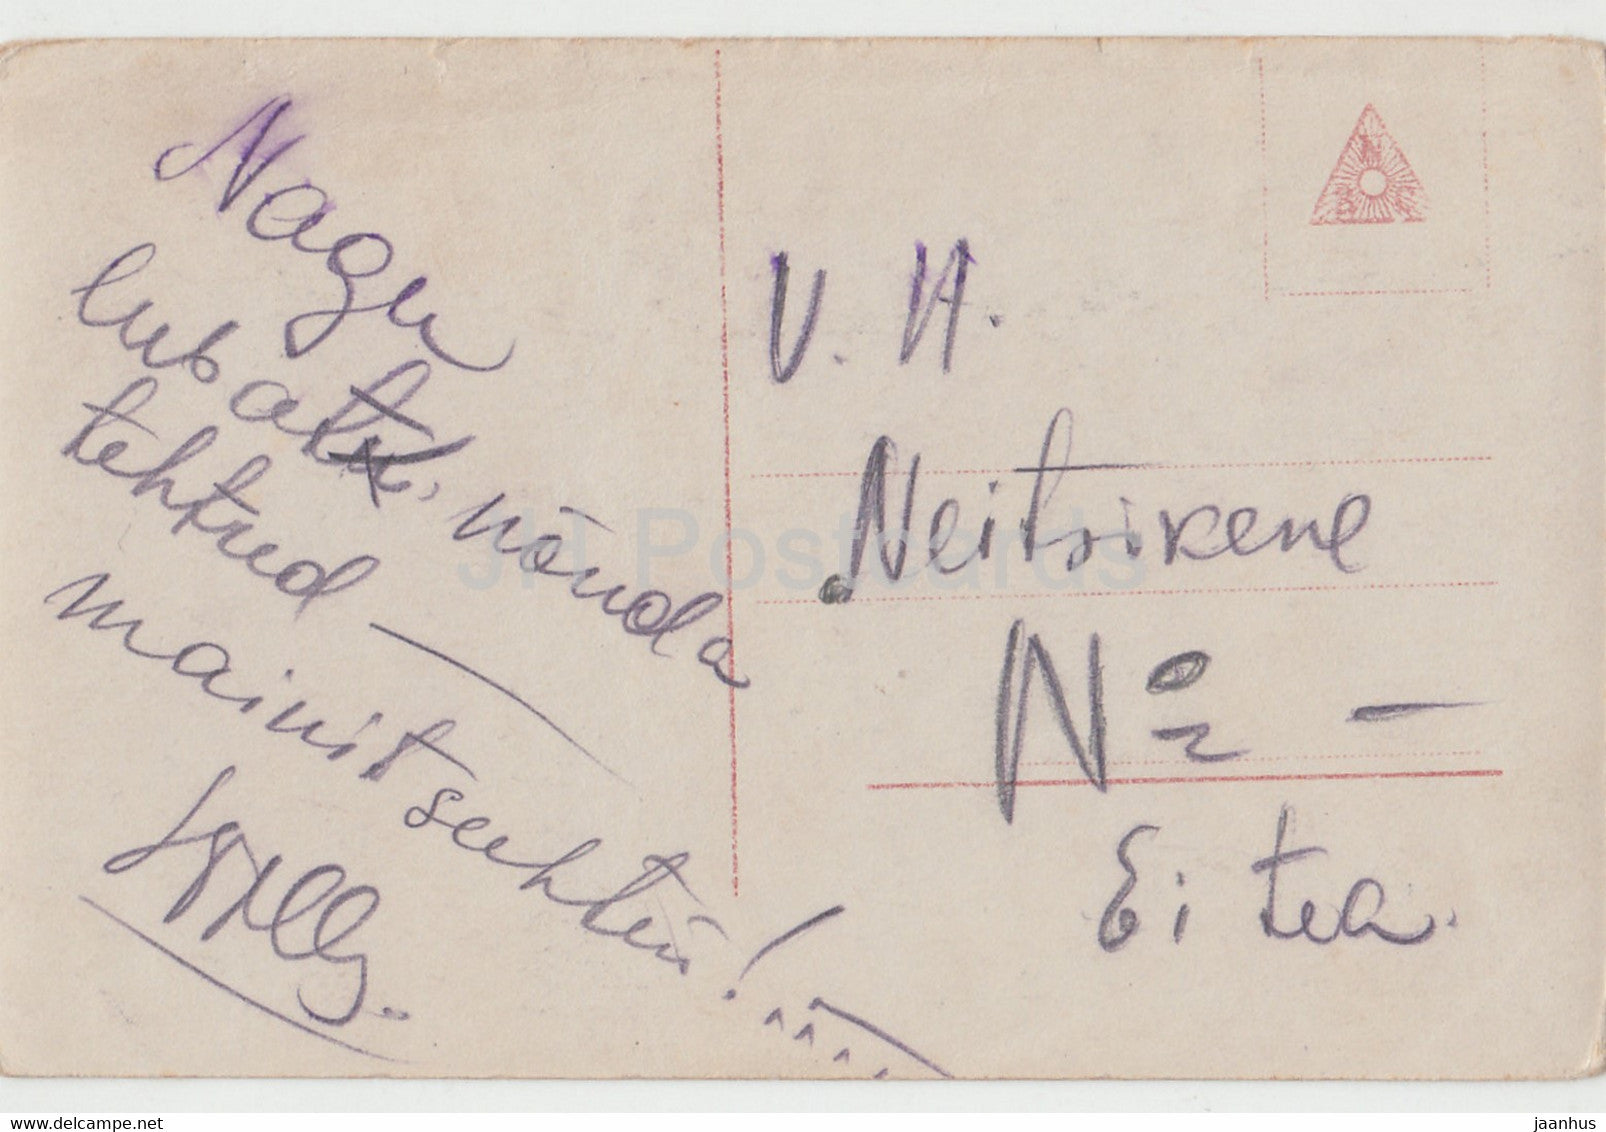 Nagu
lubatu, nõnda
tehtud —
mainit suhtin!
Willy.
V. H.
Neitsikene
No —
Ei tea.
JH Postcards
delcampe.net
jaanhus